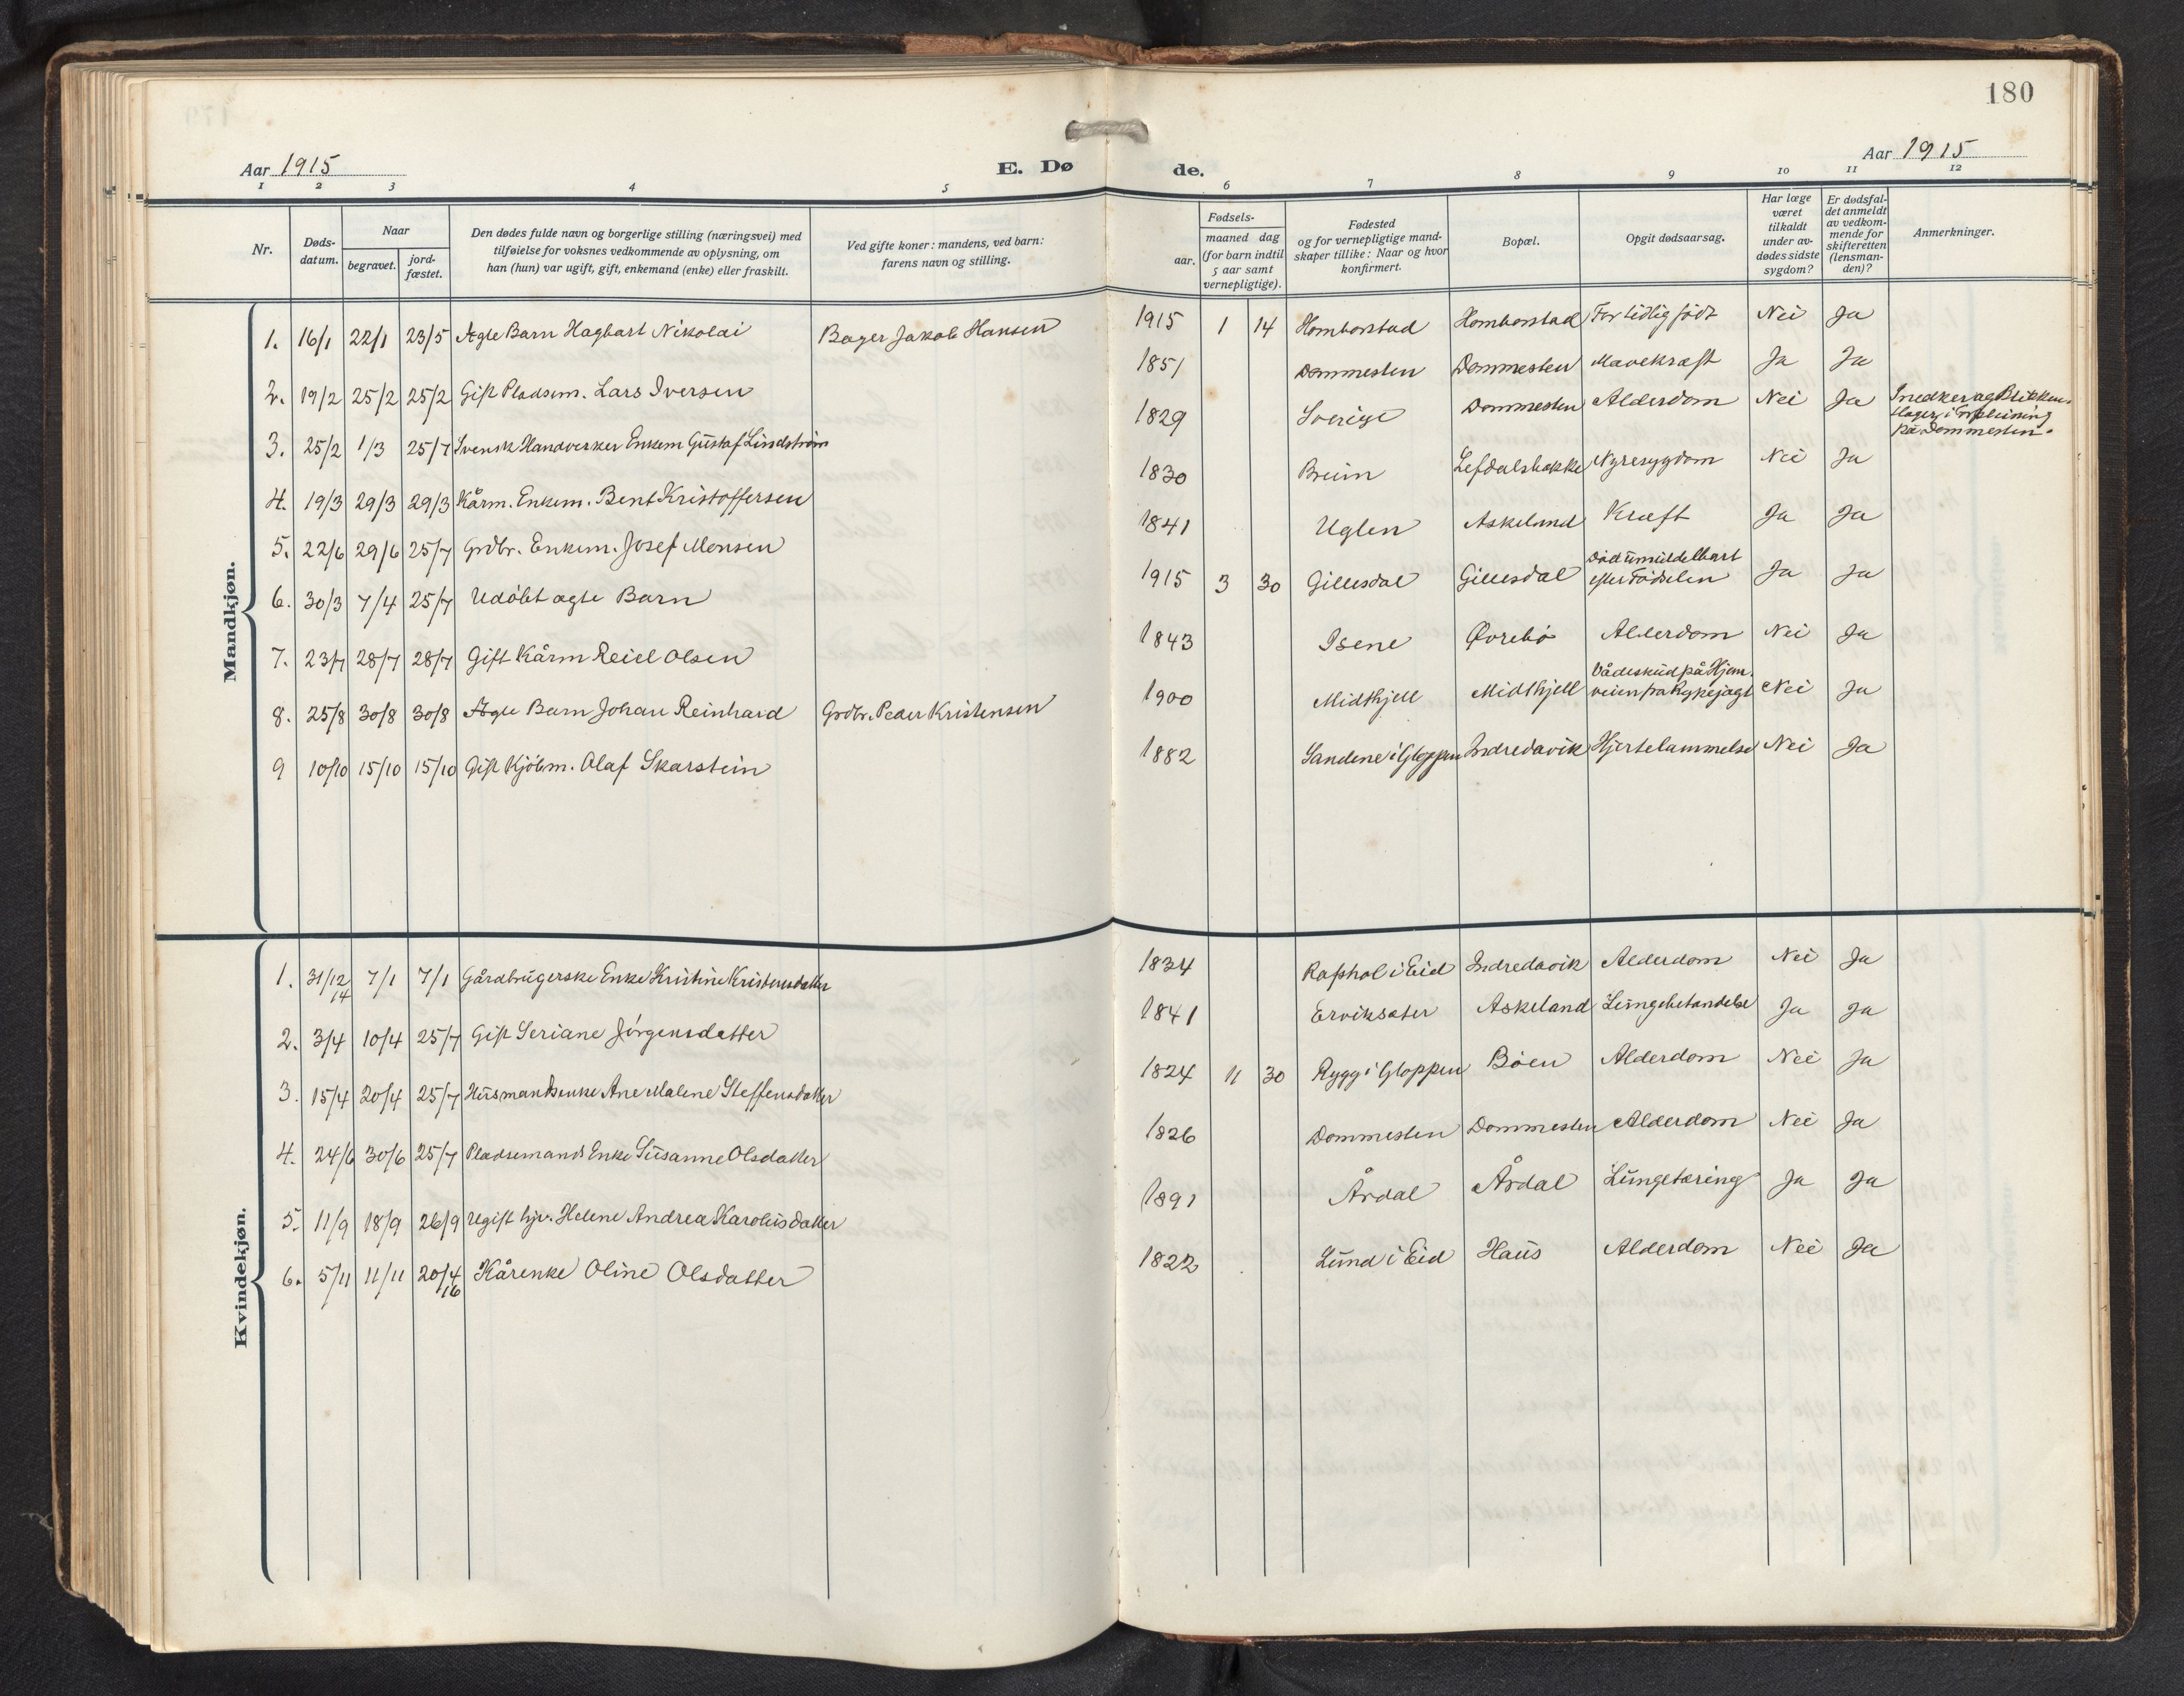 180
Aar 1915
E. Dø de.
Aar 1915
1 2 3 4 5 6 7 8 9 10 11 12
Nr.
Døds-
datum.
Naar
begravet.
jord-
fæstet.
Den dødes fulde navn og borgerlige stilling (næringsvei) med
tilføielse for voksnes vedkommende av oplysning, om
han (hun) var ugift, gift, enkemand (enke) eller fraskilt.
Ved gifte koner: mandens, ved barn:
farens navn og stilling.
Fødsels-
aar.
maaned dag
(for barn indtil
5 aar samt
vernepligtige).
Fødested
og for vernepligtige mand-
skaper tillike: Naar og hvor
konfirmert.
Bopæl.
Opgit dødsaarsag.
Har læge
været
tilkaldt
under av-
dødes sidste
sygdom?
Er dødsfal-
det anmeldt
av vedkom-
mende for
skifteretten
(lensman-
den)?
Anmerkninger.
Mandkjøn.
1. 16/1 22/1 23/5 Ægte Barn Hagbart Nikolai Bager Jakob Hansen 1915 1 14 Homborstad Homborstad For tidlig født Nei Ja
2. 19/2 25/2 25/2 Gift Pladsm. Lars Iversen 1851 Dommesten Dommesten Mavekræft Ja Ja
3. 25/2 1/3 25/7 Svensk Handverker Enkem Gustaf Lindström 1829 Sverige Dommesten Alderdom Nei Ja Snedker og Blikken-
slager, i
på Dommesten.
4. 19/3 29/3 29/3 Kårm. Enkem. Bent Kristoffersen 1830 Breim Lefdalsbakke Nyresygdom Nei Ja
5. 22/6 29/6 25/7 Grdbr. Enkem. Josef Monsen 1841 Uglen Askeland Kræft Ja Ja
6. 30/3 7/4 25/7 Udøbt ægte Barn 1915 3 30 Gillesdal Gillesdal Død umiddelbart
efter Fødselen Ja Ja
7. 23/7 28/7 28/7 Gift Kårm Reiel Olsen 1843 Isene Øvrebø Alderdom Nei Ja
8. 25/8 30/8 30/8 Ægte Barn Johan Reinhard Grdbr. Peder Kristensen 1900 Midthjell Midthjell Vådeskud på Hjem-
veien fra Rypejagt Nei Ja
9 10/10 15/10 15/10 Gift Kjöbm. Olaf Skarstein 1882 Sandene i Gloppen Indredavik Hjertelammelse Nei Ja
Kvindekjøn.
1. 31/12 14 7/1 7/1 Gårdbrugerske Enke Kristine Kristensdatter 1834 Rafshol i Eid Indredavik Alderdom Nei Ja
2. 3/4 10/4 25/7 Gift Seriane Jörgensdatter 1841 Erviksæter Askeland Lungebetændelse Ja Ja
3. 15/4 20/4 25/7 Husmandsenke Ane Malene Steffensdatter 1824 11 30 Rygg i Gloppen Böen Alderdom Nei Ja
4. 24/6 30/6 25/7 Pladsemands Enke Susanne Olsdatter 1826 Dommesten Dommesten Alderdom Nei Ja
5. 11/9 18/9 26/9 Ugift hjv. Helene Andrea Karolusdatter 1891 Årdal Årdal Lungetæring Ja Ja
6. 5/11 11/11 20/4 16 Kårenke Oline Olsdatter 1822 Lund i Eid Haus Alderdom Nei Ja